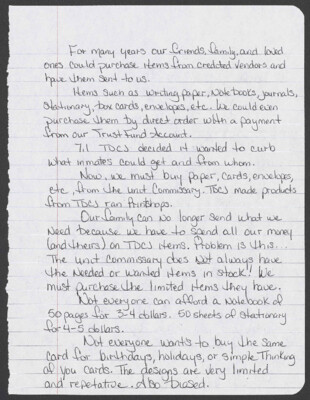 For many years our friends, family, and loved
ones could purchase items from credited vendors and
have them sent to us.
Items such as writing paper, Notebooks, journals,
stationary, box cards, envelopes, etc. We could even
purchase them by direct order with a payment
from our Trust Fund Account.
7.1 TDCJ decided it wanted to curb
what inmates could get and from whom.
Now, we must buy paper, cards, envelopes,
etc., from the unit Commissary. TDCJ made products
from TDCJ ran Printshops.
Our family can no longer send what we
Need because we have to spend all our money
(and theirs) on TDCJ items. Problem is this...
The unit Commissary does Not always have
the Needed or wanted items in stock! We
must purchase the limited items they have.
Not everyone can afford a Notebook of
50 pages for 3-4 dollars. 50 sheets of stationary
for 4-5 dollars.
Not everyone wants to buy the same
card for birthdays, holidays, or simple Thinking
of you cards. The designs are very limited
and repetative. Also biased.